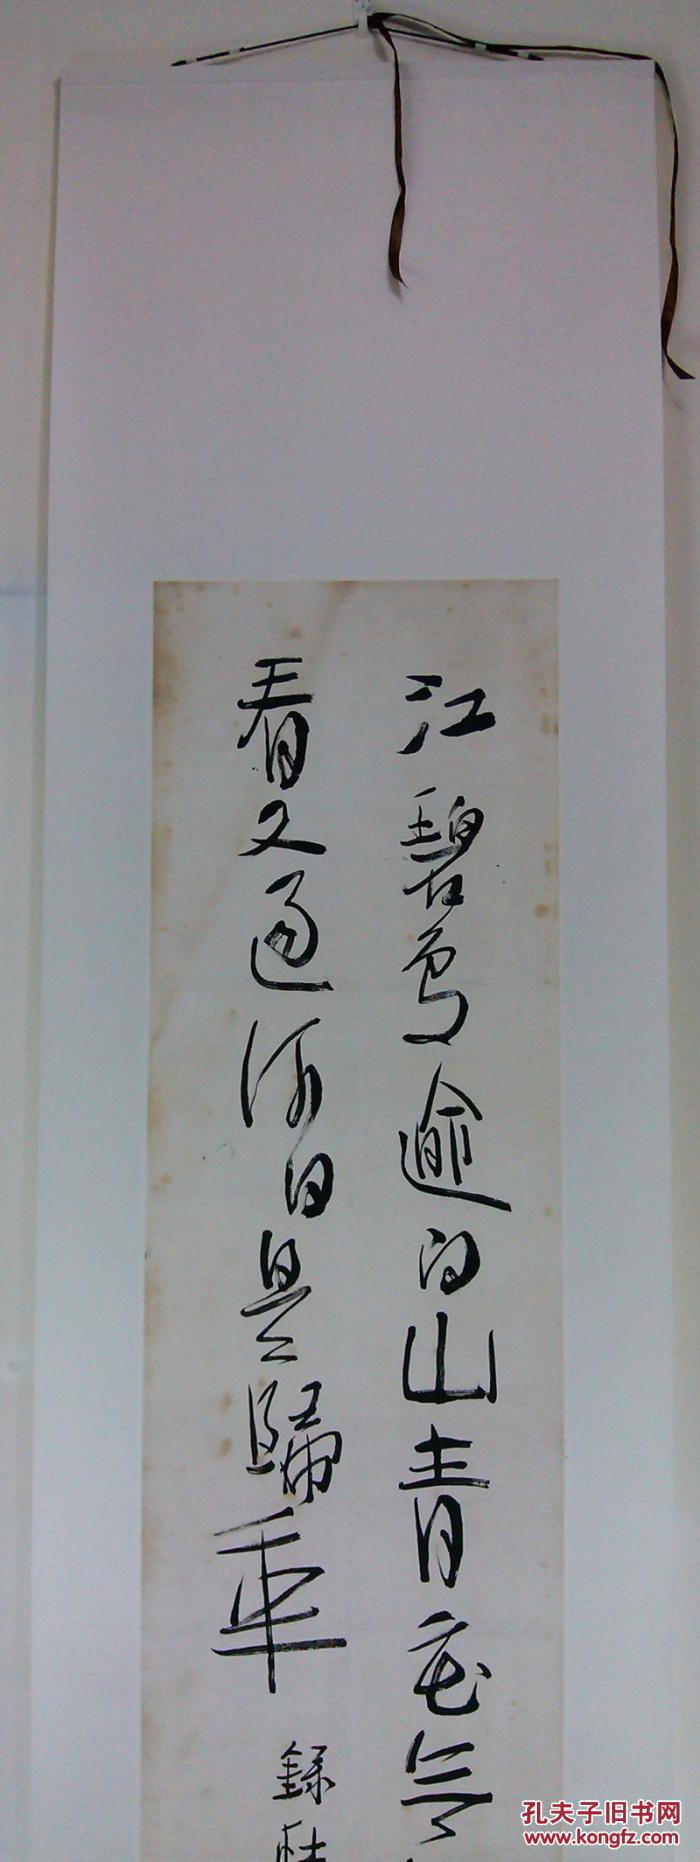 江碧鳥逾白山青花
看又過何日是歸年
錄杜
孔夫子旧书网
www.kongfz.com